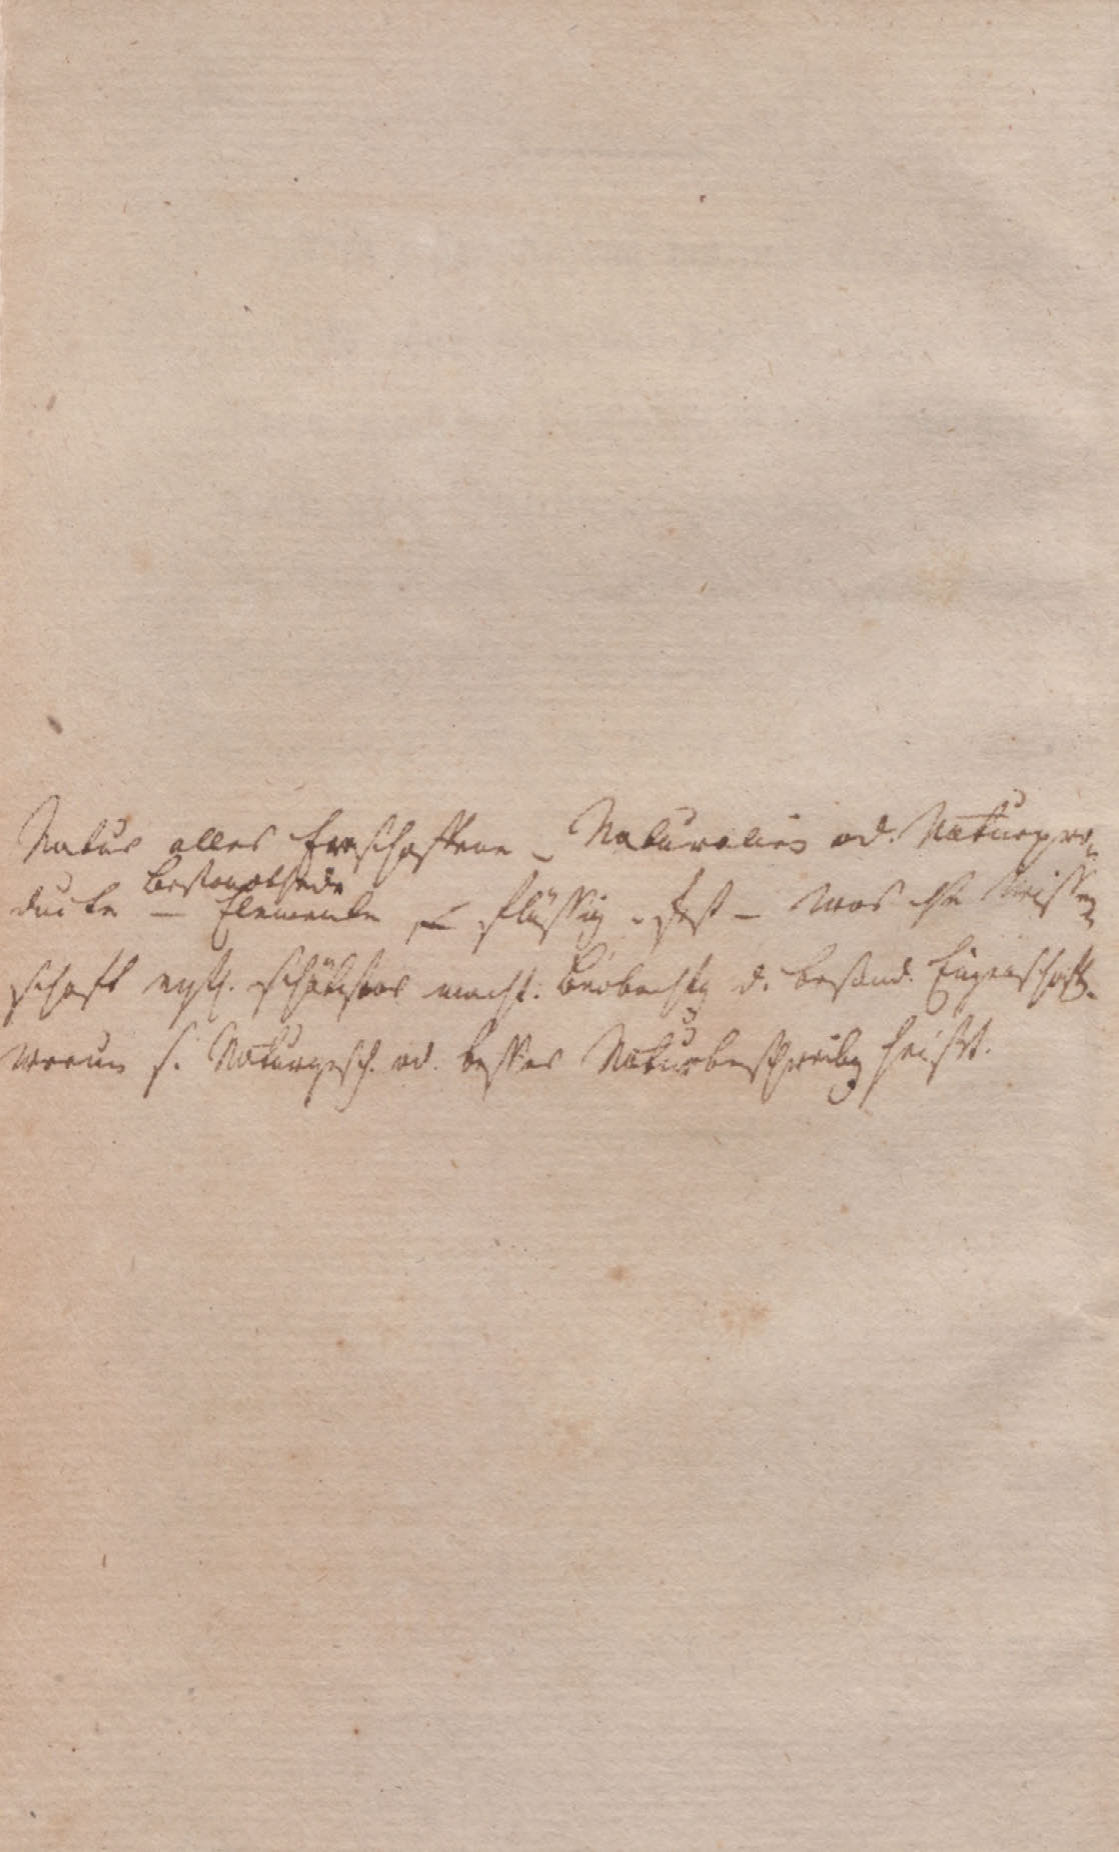 Natur alles Erschaffene – Naturalien od. Naturpro-
Bestandtheile
ducte – Elemente – flüßig. fest – was die Wissen-
schaft schätzbar macht. Beobachtg d. besond. Eigenschaft.
warum s. Naturgesch. od. besser Naturbeschreibg heißt.